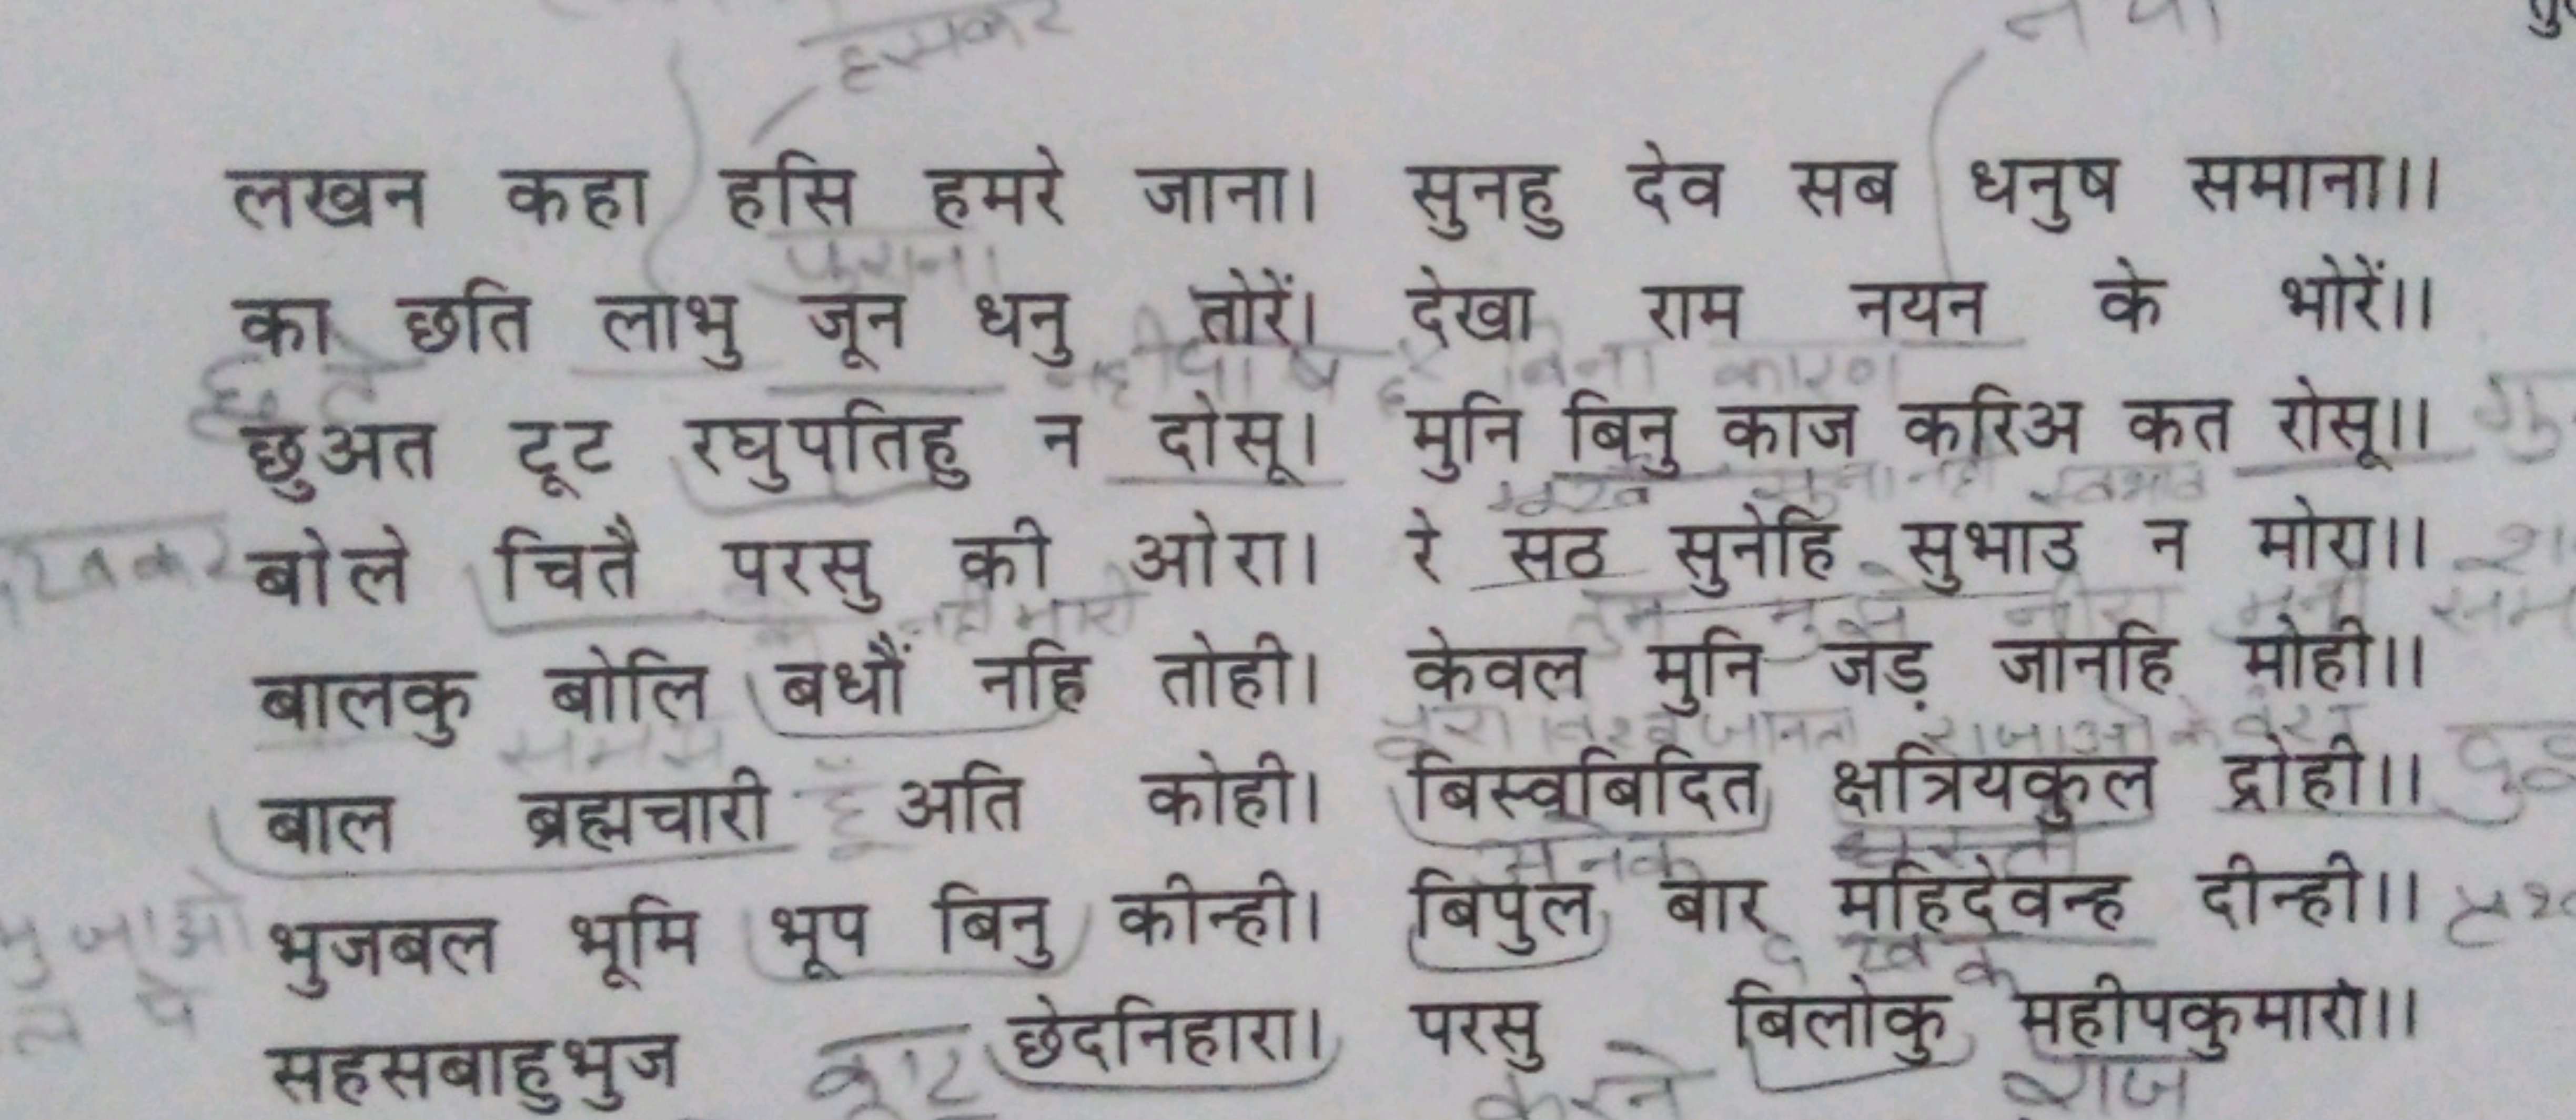 हसकर नया
लखन कहा हसि हमरे जाना। सुनहु देव सब धनुष समाना।।
पुराना
का छति लाभु जून धनु तोरें। देखा राम नयन के भोरें।।
बिना कारण
छुअत टूट रघुपतिहु न दोसू। मुनि बिनु काज करिअ कत रोसू।।
बोले चितै परसु की ओरा। रे सठ सुनेहि सुभाउ न मोरा।।
बालकु बोलि बधौं नहि तोही। केवल मुनि जड़ जानहि मोही।।
बाल ब्रह्मचारी हूँ अति कोही। बिस्वबिदित क्षत्रियकुल द्रोही।।
भुजबल भूमि भूप बिनु कीन्ही। बिपुल बार महिदेवन्ह दीन्ही।।
सहसबाहुभुज काट छेदनिहारा। परसु बिलोकु महीपकुमारा।।
करने राज